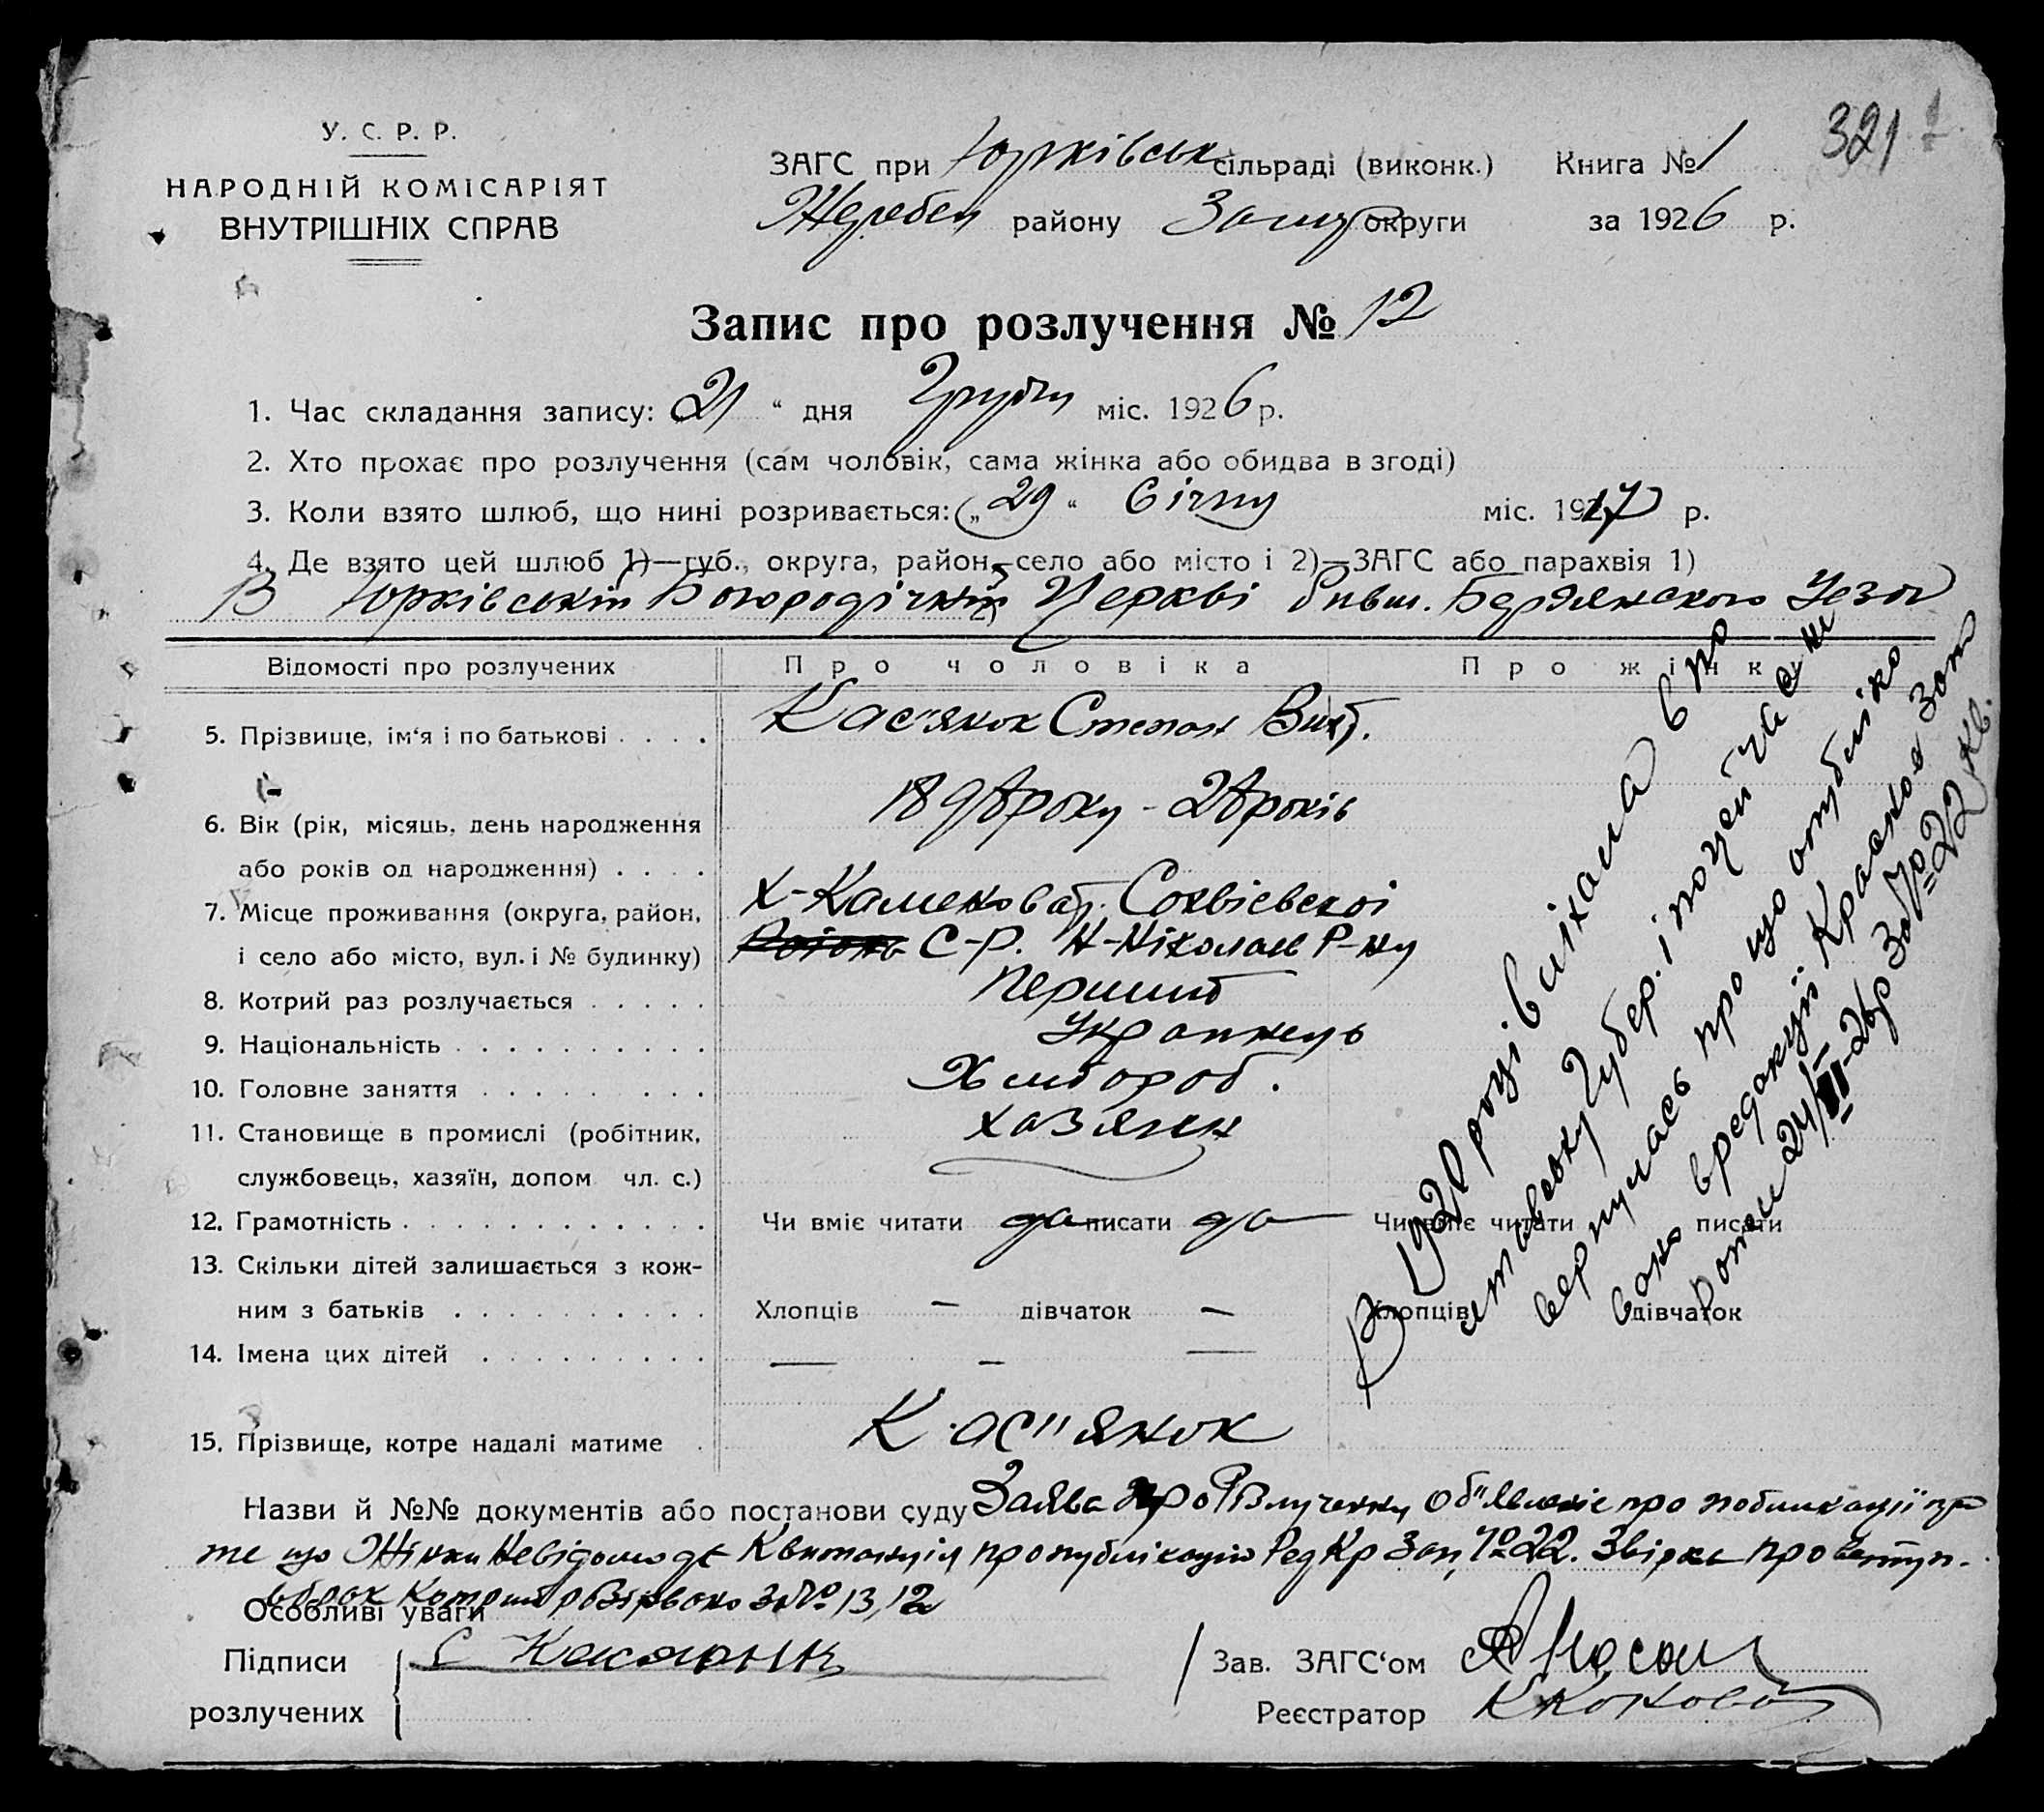 321
У. С. Р. Р.
НАРОДНІЙ КОМІСАРІЯТ
ВНУТРІШНІХ СПРАВ
ЗАГС при Юрківськ сільраді (виконк.) Книга № 1
Жеребец району Запор округи за 1926 р.
Запис про розлучення № 12
1. Час складання запису: 21 “ дня Грудня міс. 1926 р.
2. Хто прохає про розлучення (сам чоловік, сама жінка або обидва в згоді)
3. Коли взято шлюб, що нині розривається: „29“ Січня міс. 1917 р.
4. Де взято цей шлюб 1)—губ., округа, район, село або місто і 2)—ЗАГС або парахвія 1)
В Юрківській Богородічній Церкві бивш. Бердянского Уезда
2)
Відомості про розлучених Про чоловіка Про жінк
5. Прізвище, ім‘я і по батькові . . . . Кас"янок Степан
6. Вік (рік, місяць, день народження 1898 року - 28 років
або років од народження) . . . .
7. Місце проживання (округа, район, Х-Каменоват. Сохвіевскоі
і село або місто, вул. і № будинку) С-Р. Н-Ніколаев Р-ну
8. Котрий раз розлучається . . . . . Перший
9. Національність . . . . . . . . . . Українець
10. Головне заняття . . . . . . . . . Хлібороб.
11. Становище в промислі (робітник, хазяин
службовець, хазяїн, допом чл. с.)
12. Грамотність . . . . . . . . . . . . Чи вміє читати да писати да Чи вміє читати писати
13. Скільки дітей залишається з кож-
ним з батьків . . . . . . . . . . Хлопців — дівчаток — Хлопців дівчаток
14. Імена цих дітей . . . . . . . . . — — —
15. Прізвище, котре надалі матиме . Кас"янок
В 1920 році виїхала в по
лтавську Губер. і по цей час не
вернулась про що опубліко
вано в редакції Красное Запо
24/II-26р За № 22 кв.
Назви й №№ документів або постанови суду Заява про Розлучення об"явленіе про побликації про
те що Жінки Невідомо де Квитанція про публікацію Ред Кр Зап, № 22. Звірка про вступ.
в брак розірвано За № 13,12
Особливі уваги
Підписи розлучених { С Касяянк
Зав. ЗАГС‘ом
Реєстратор